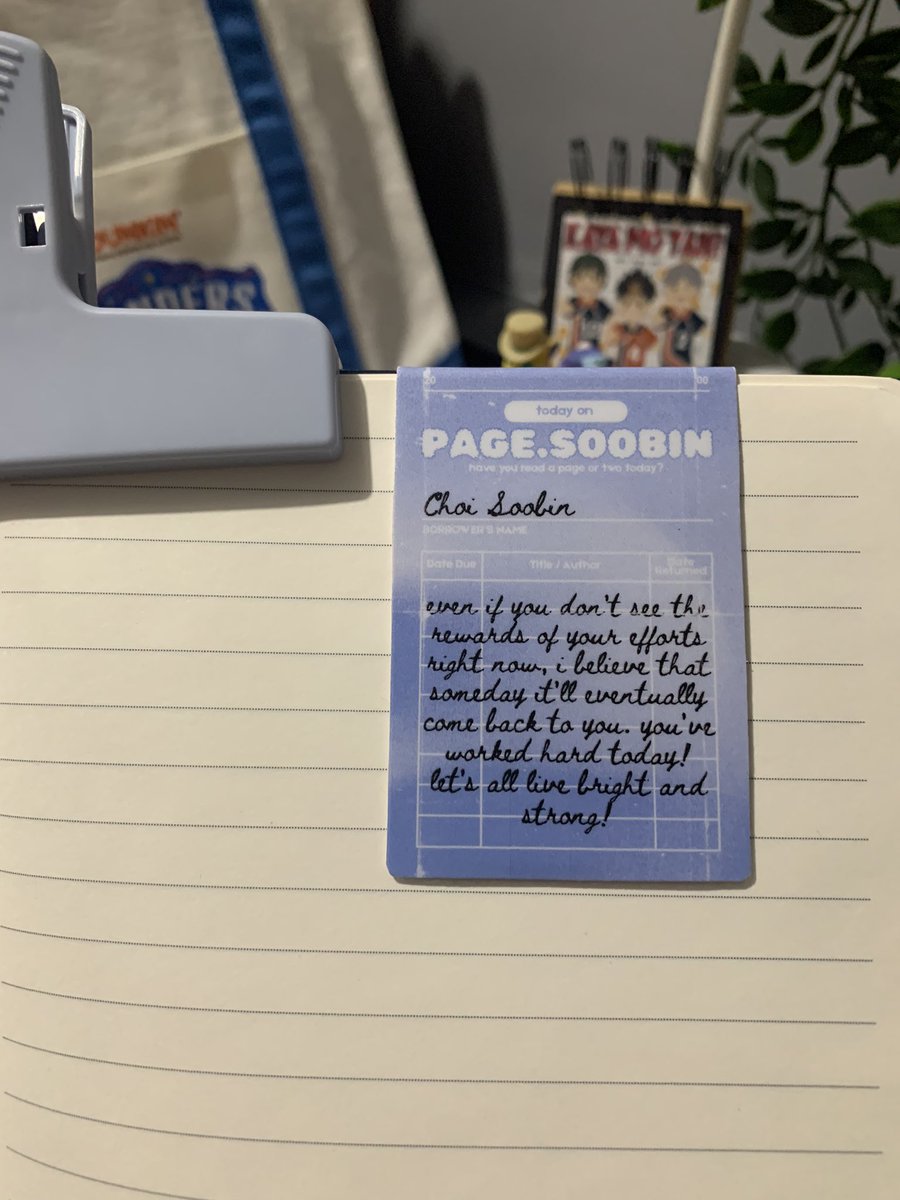 DUNKIN'
KAYA MO YAN!
20
00
today on
PAGE.SOOBIN
have you read a page or two today?
Choi Soobin
BORROWER'S NAME
Date Due
Title / Author
Date
Returned
even if you don't see the
rewards of your efforts
right now, i believe that
someday it'll eventually
come back to you. you've
worked hard today!
let's all live bright and
strong!